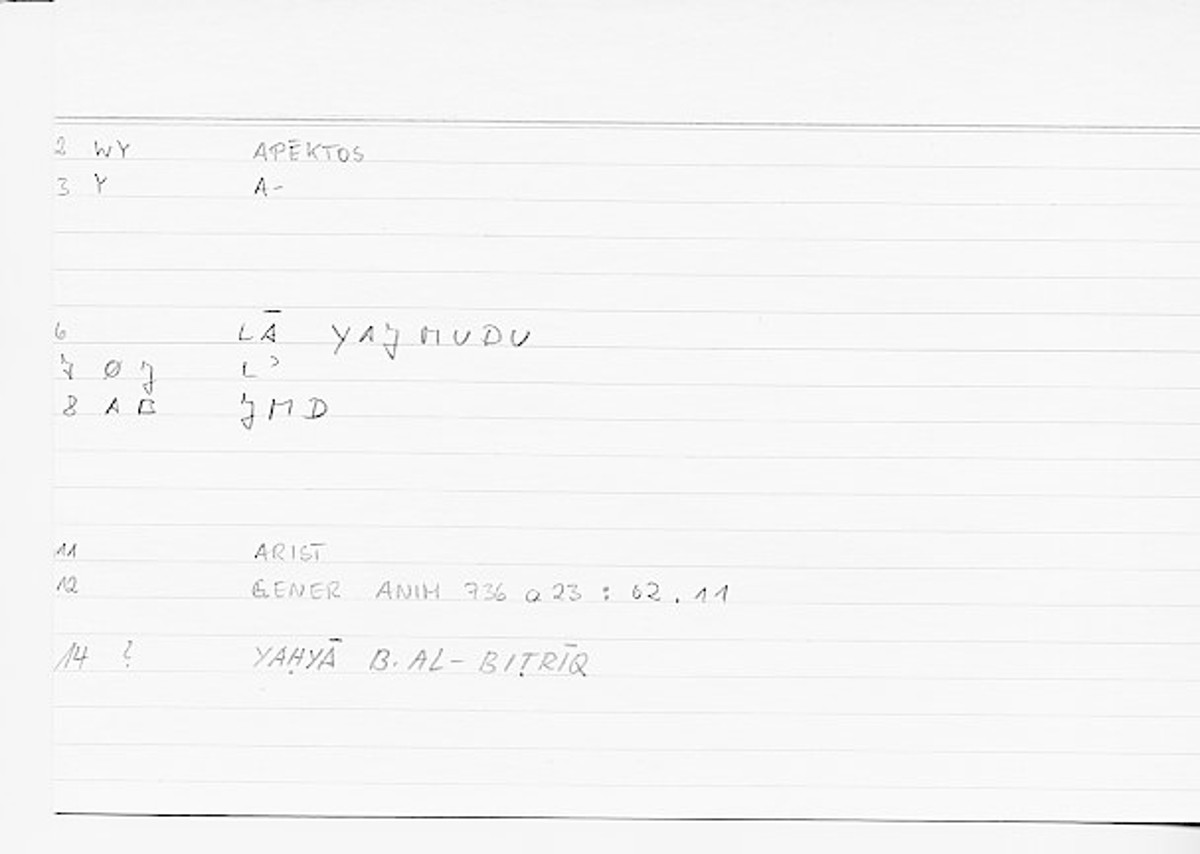 2 WY APĒKTOS
3 Y A-
6 LĀ YAJMUDU
7 Ø J L ʾ
8 A B JMD
11 ARIST
12 GENER ANIM 736 a 23 : 62 . 11
14 ? YAḤYĀ B. AL-BIṬRĪQ